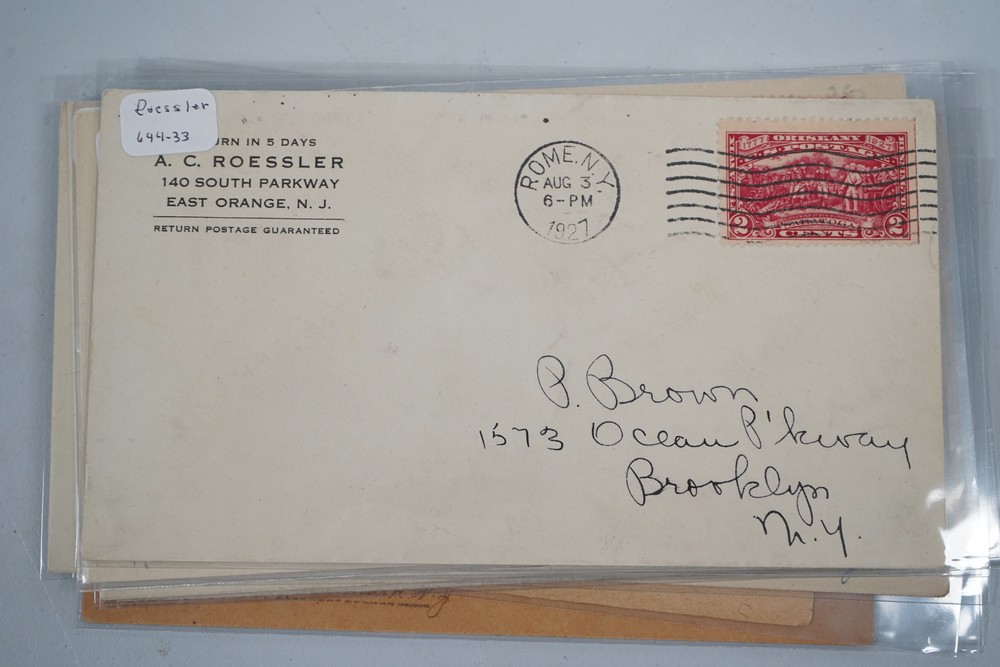 Roessler
644-33
URN IN 5 DAYS
A. C. ROESSLER
140 SOUTH PARKWAY
EAST ORANGE, N. J.
RETURN POSTAGE GUARANTEED
ROME. N.Y.
AUG 3
6-PM
1927
1777 ORISKANY 1927
U.S. POSTAGE
SARATOGA
2 CENTS 2
P. Brown
1573 Ocean P'kway
Brooklyn
N.Y.